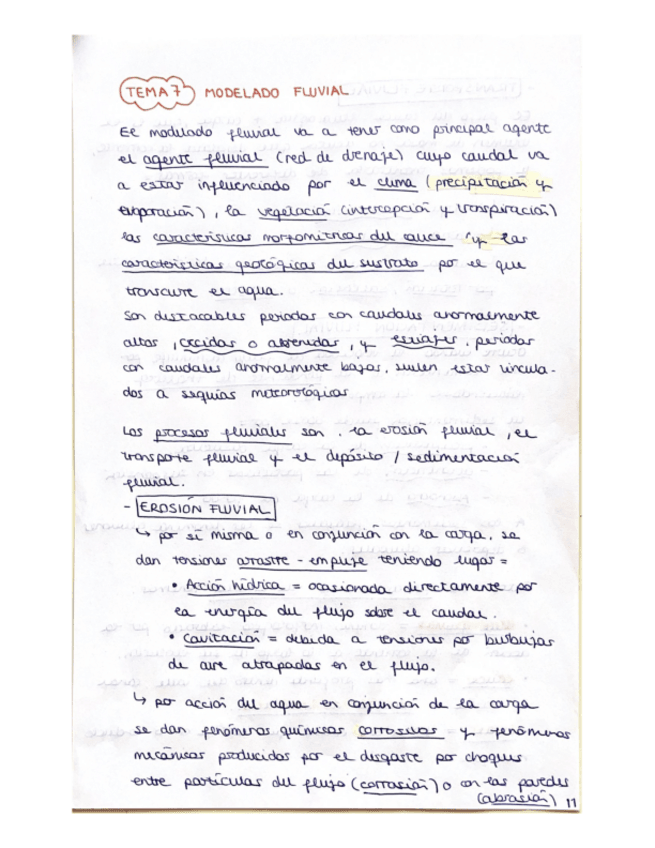 TEMA 7 MODELADO FLUVIAL
El modelado fluvial va a tener como principal agente
el agente fluvial (red de drenaje) cuyo caudal va
a estar influenciado por el clima (precipitación y
evaporación), la vegetación (intercepción y transpiración)
las características morfométricas del cauce y las
características geológicas del sustrato por el que
transcurre el agua.
Son destacables periodos con caudales anormalmente
altos, crecidas o avenidas, y estiajes, periodos
con caudales anormalmente bajos, suelen estar vincula-
dos a sequías meteorológicas.
Los procesos fluviales son, la erosión fluvial, el
transporte fluvial y el depósito / sedimentación
fluvial.
- EROSIÓN FLUVIAL
↳ por sí misma o en conjunción con la carga, se
dan tensiones arrastre - empuje teniendo lugar =
• Acción hídrica = ocasionada directamente por
la energía del flujo sobre el caudal.
• Cavitación = debida a tensiones por burbujas
de aire atrapadas en el flujo.
↳ por acción del agua en conjunción de la carga
se dan fenómenos químicos corrosivos y fenómenos
mecánicos producidos por el desgaste por choques
entre partículas del flujo (corrasión) o con las paredes
(abrasión) 11